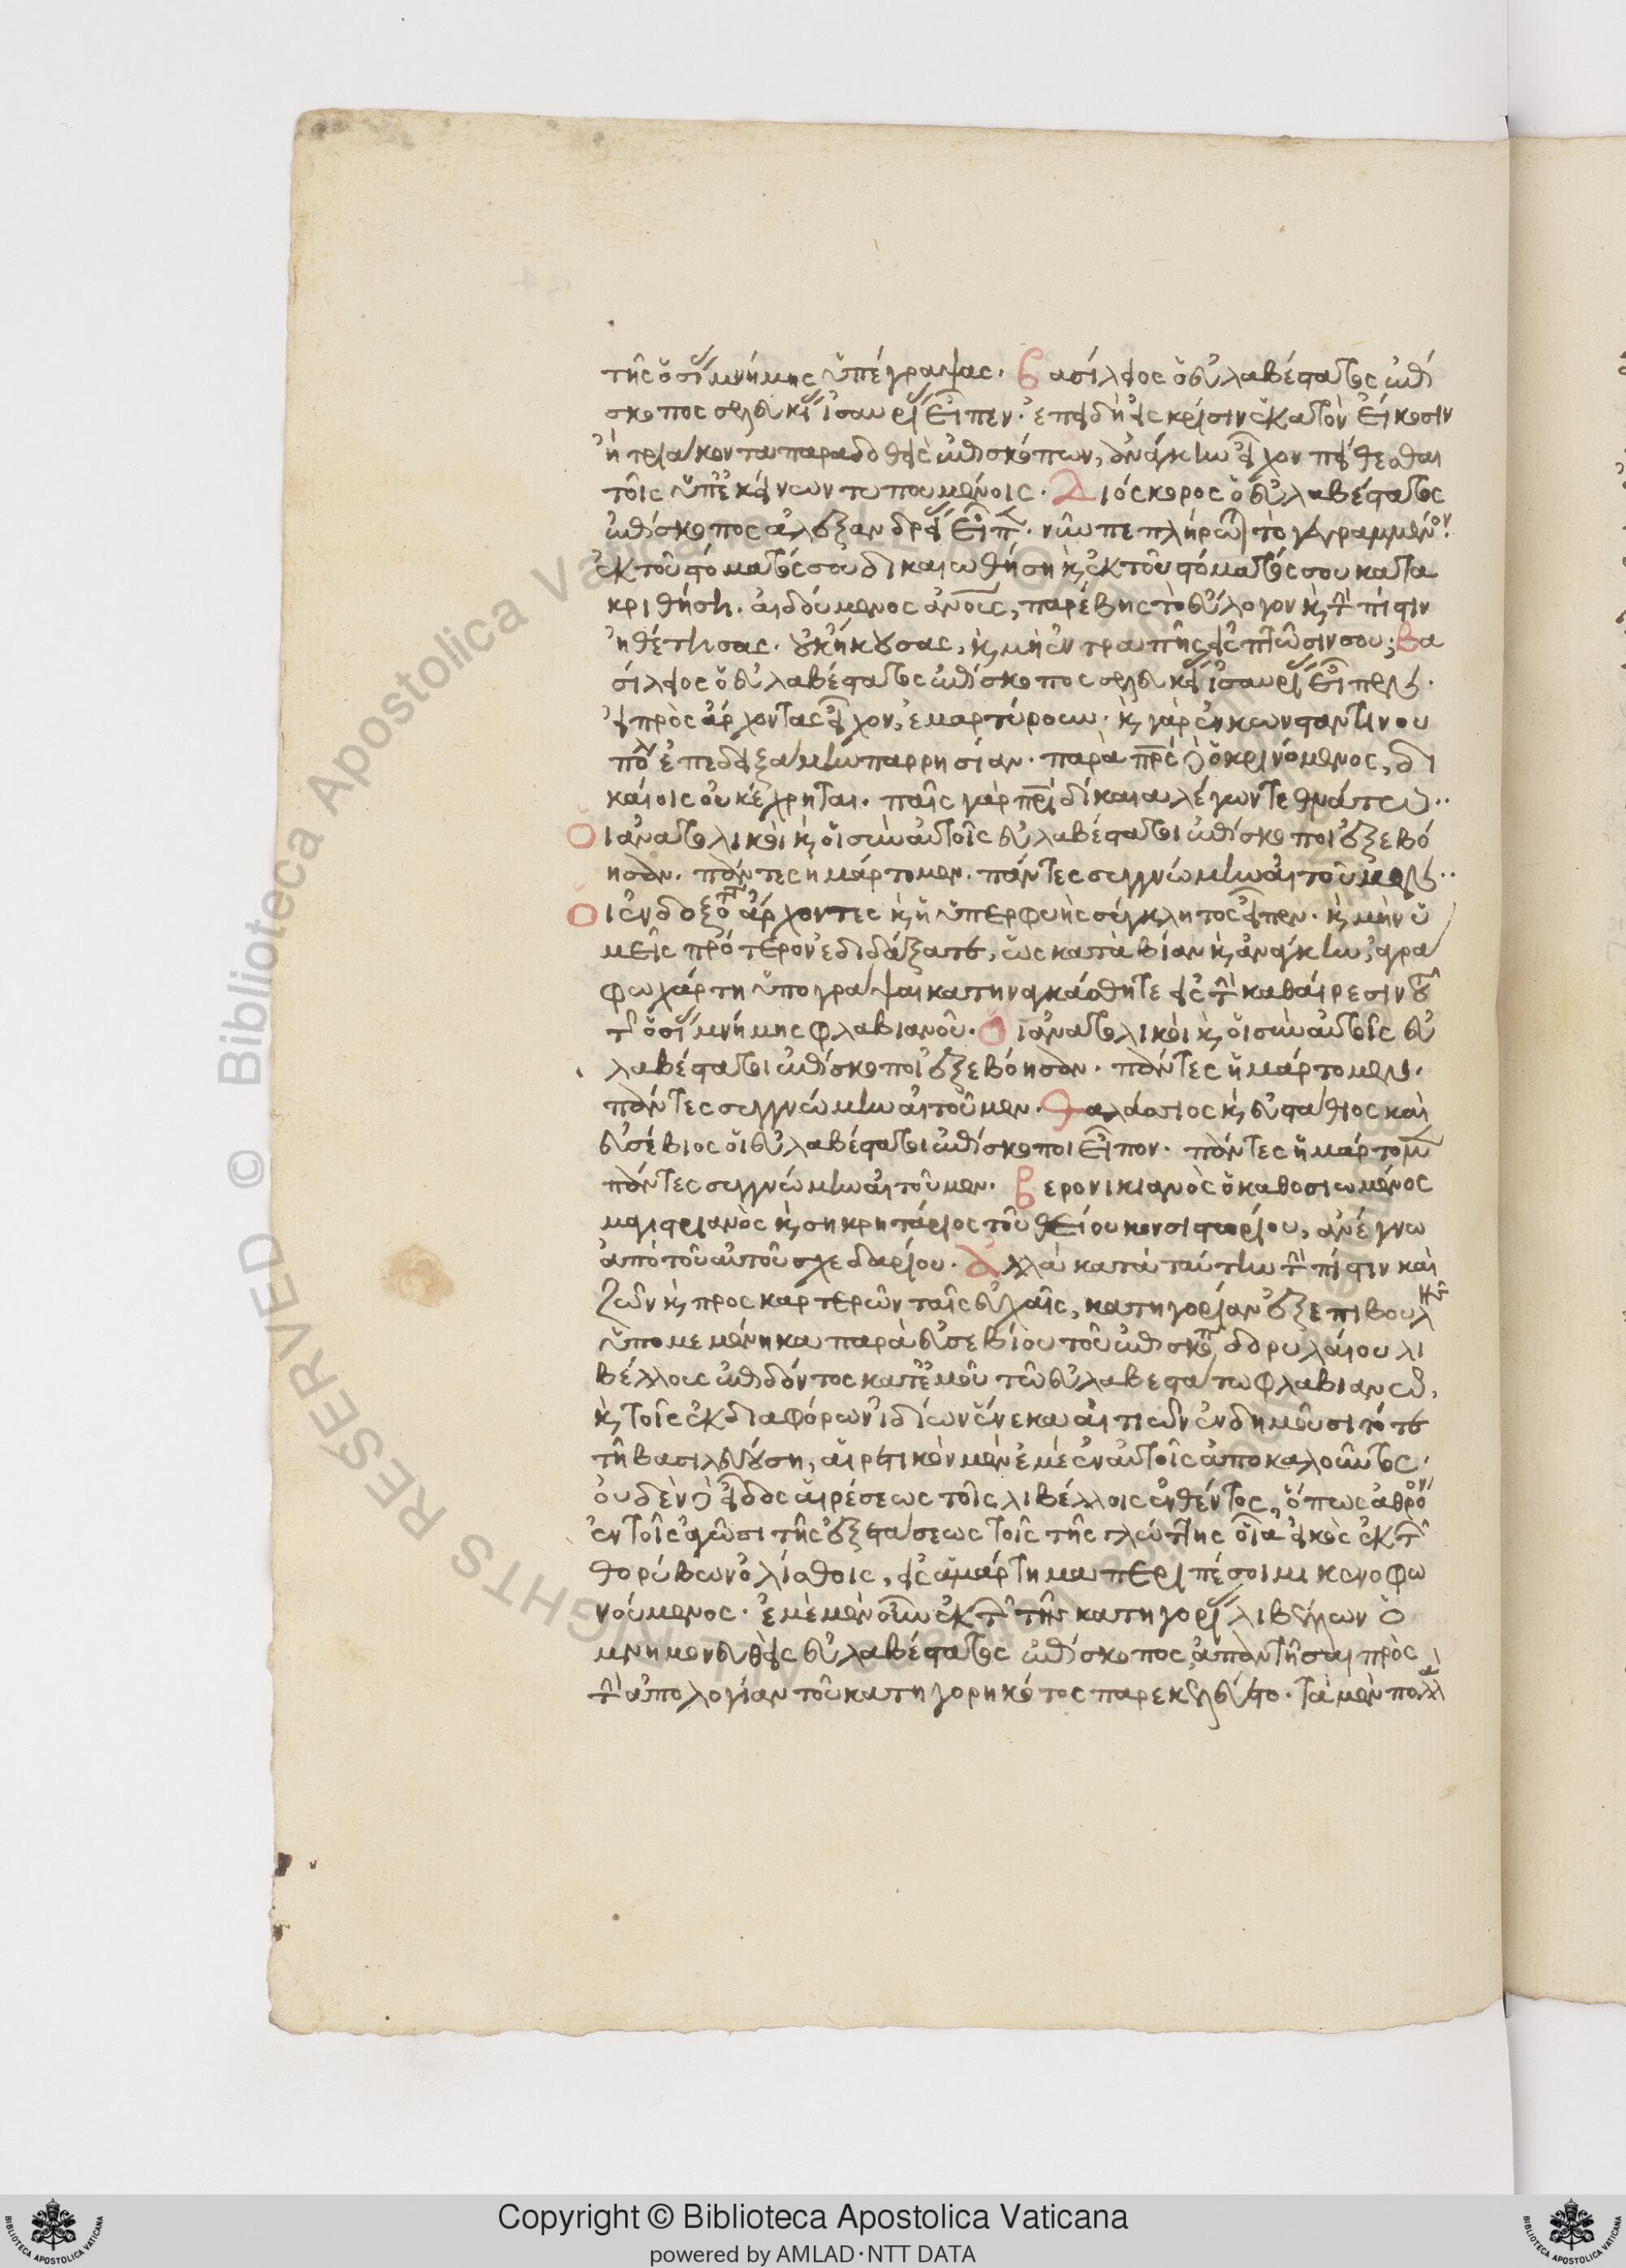 τῆς ὁσί μνήμης ὑπέγραψας. Βασίλειος ὁ εὐλαβέστατος ἐπί
σκοπος σελευκεί ἰσαυρί εἶπεν. ἐπειδὴ εἰς κρίσιν ἑκατὸν εἴκοσιν
ἢ τριάκοντα παραδοθεὶς ἐπισκόπων, ἀνάγκην εἶχον πείθεσθαι
τοῖς ὑπ' ἐκείνων τυπουμένοις. Διόσκορος ὁ εὐλαβέστατος
ἐπίσκοπος ἀλεξανδρεί εἶπ. νῦν πεπλήρωται τὸ γεγραμμένον.
ἐκ τοῦ στόματός σου δικαιωθήση κ, ἐκ τοῦ στόματός σου κατα
κριθήση. αἰδούμενος ἀνους, παρέβης τὸ εὔλογον κ, τὴν πίστιν
ἠθέτησας. οὐκ ἤκουσας, κ, μὴ ἐντραπῆς εἰς πτῶσιν σου; Βα
σίλειος ὁ εὐλαβέστατος ἐπίσκοπος σελευκεί ἰσαυρί εἶπεν.
εἰ πρὸς ἄρχοντας εἶχον, ἐμαρτύρουν. κ, γὰρ ἐν κωνσταντινου
πόλ ἐπεδειξάμην παρρησίαν. παρὰ πρς δὲ ὁ κρινόμενος, δι
καίοις οὐ κέχρηται. παῖς γὰρ πρὶ δίκαια λέγων τεθνάτω..
Οἱ ἀνατολικοὶ κ, οἱ σὺν αὐτοῖς εὐλαβέστατοι ἐπίσκοποι ἐξεβό
ησαν. πάντες ἡμάρτομεν. πάντες συγγνώμην αἰτοῦμεν..
Οἱ ἐνδοξότ ἄρχοντες κ, ἡ ὑπερφυὴς σύγκλητος εἶπεν. κ, μὴν ὑ
μεῖς πρότερον ἐδιδάξατε, ὡς κατὰ βίαν κ, ἀνάγκην, ἀγρά
φω χάρτη ὑπογράψαι κατηναγκάσθητε εἰς τὴν καθαίρεσιν τοῦ
τῆς ὁσί μνήμης φλαβιανοῦ. Οἱ ἀνατολικοὶ κ, οἱ σὺν αὐτοῖς εὐ
λαβέστατοι ἐπίσκοποι ἐξεβόησαν. πάντες ἡμάρτομεν.
πάντες συγγνώμην αἰτοῦμεν. Θαλάσσιος κ, εὐστάθιος καὶ
εὐσέβιος οἱ εὐλαβέστατοι ἐπίσκοποι εἶπον. πάντες ἡμάρτομ
πάντες συγγνώμην αἰτοῦμεν. Βερονικιανὸς ὁ καθοσιωμένος
μαγιστριανὸς κ, σηκρητάριος τοῦ θείου κονσιστωρίου, ἀνέγνω
ἀπὸ τοῦ αὐτοῦ σχεδαρίου. Ἀλλὰ κατὰ ταύτην τὴν πίστιν καὶ
ζῶν κ, προσκαρτερῶν ταῖς εὐχαῖς, κατηγορίαν ἐξ ἐπιβουλῆς
ὑπομεμένηκα παρὰ εὐσεβίου τοῦ ἐπισκόπ δορυλαίου λι
βέλλους ἐπιδόντος κατ' ἐμοῦ τῶ εὐλαβεστάτω φλαβιανῶ,
κ, τοῖς ἐκ διαφόρων ἰδίων ἕνεκα αἰτιῶν ἐνδημοῦσι τότε
τῆ βασιλευούση, αἱρετικὸν μὲν ἐμὲ ἐν αὐτοῖς ἀποκαλοῦντος,
οὐδὲν δὲ εἶδος αἱρέσεως τοῖς λιβέλλοις ἐνθέντος, ὅπως ἀθρόον
ἐν τοῖς ἀγῶσι τῆς ἐξετάσεως τοῖς τῆς γλώττης οἷα εἰκὸς ἐκ τῶν
θορύβων ὀλίσθοις, εἰς ἁμάρτημα περιπέσοιμι κενοφω
νούμενος. ἐμὲ μὲν οὖν ἐκ τῶν τῆς κατηγορί λιβέλλων ὁ
μνημονευθεὶς εὐλαβέστατος ἐπίσκοπος, ἀπαντῆσαι πρὸς
τὴν ἀπολογίαν τοῦ κατηγορηκότος παρεκελεύετο. τὰ μὲν πολλὰ
Copyright © Biblioteca Apostolica Vaticana
powered by AMLAD·NTT DATA